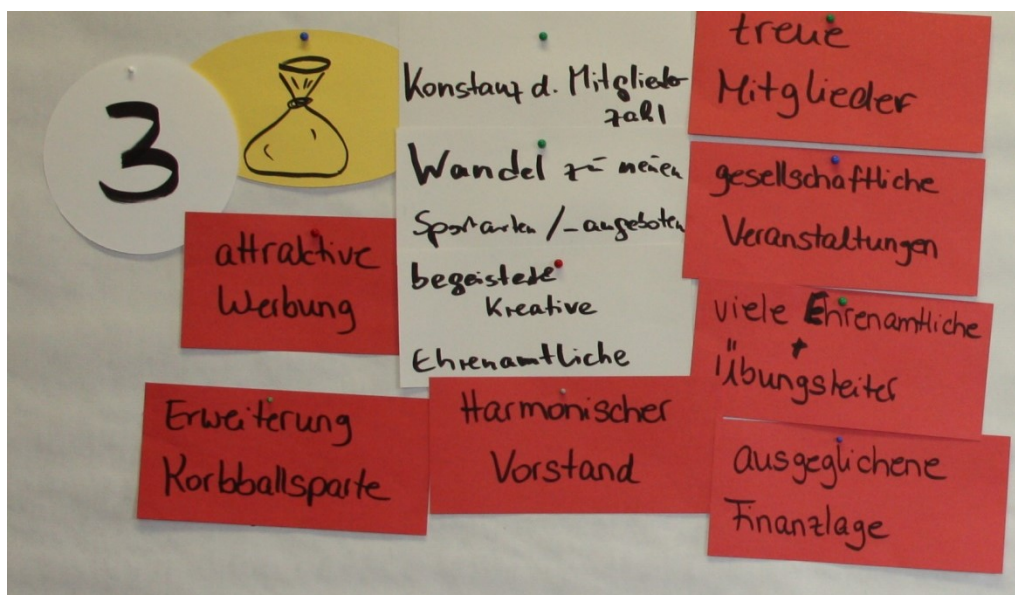 3
Konstanz d. Mitglieder
zahl
Wandel zu neuen
Sportarten /-angeboten
begeisterte
Kreative
Ehrenamtliche
treue
Mitglieder
gesellschaftliche
Veranstaltungen
attraktive
Werbung
viele Ehrenamtliche
+
Übungsleiter
Erweiterung
Korbballsparte
Harmonischer
Vorstand
ausgeglichene
Finanzlage